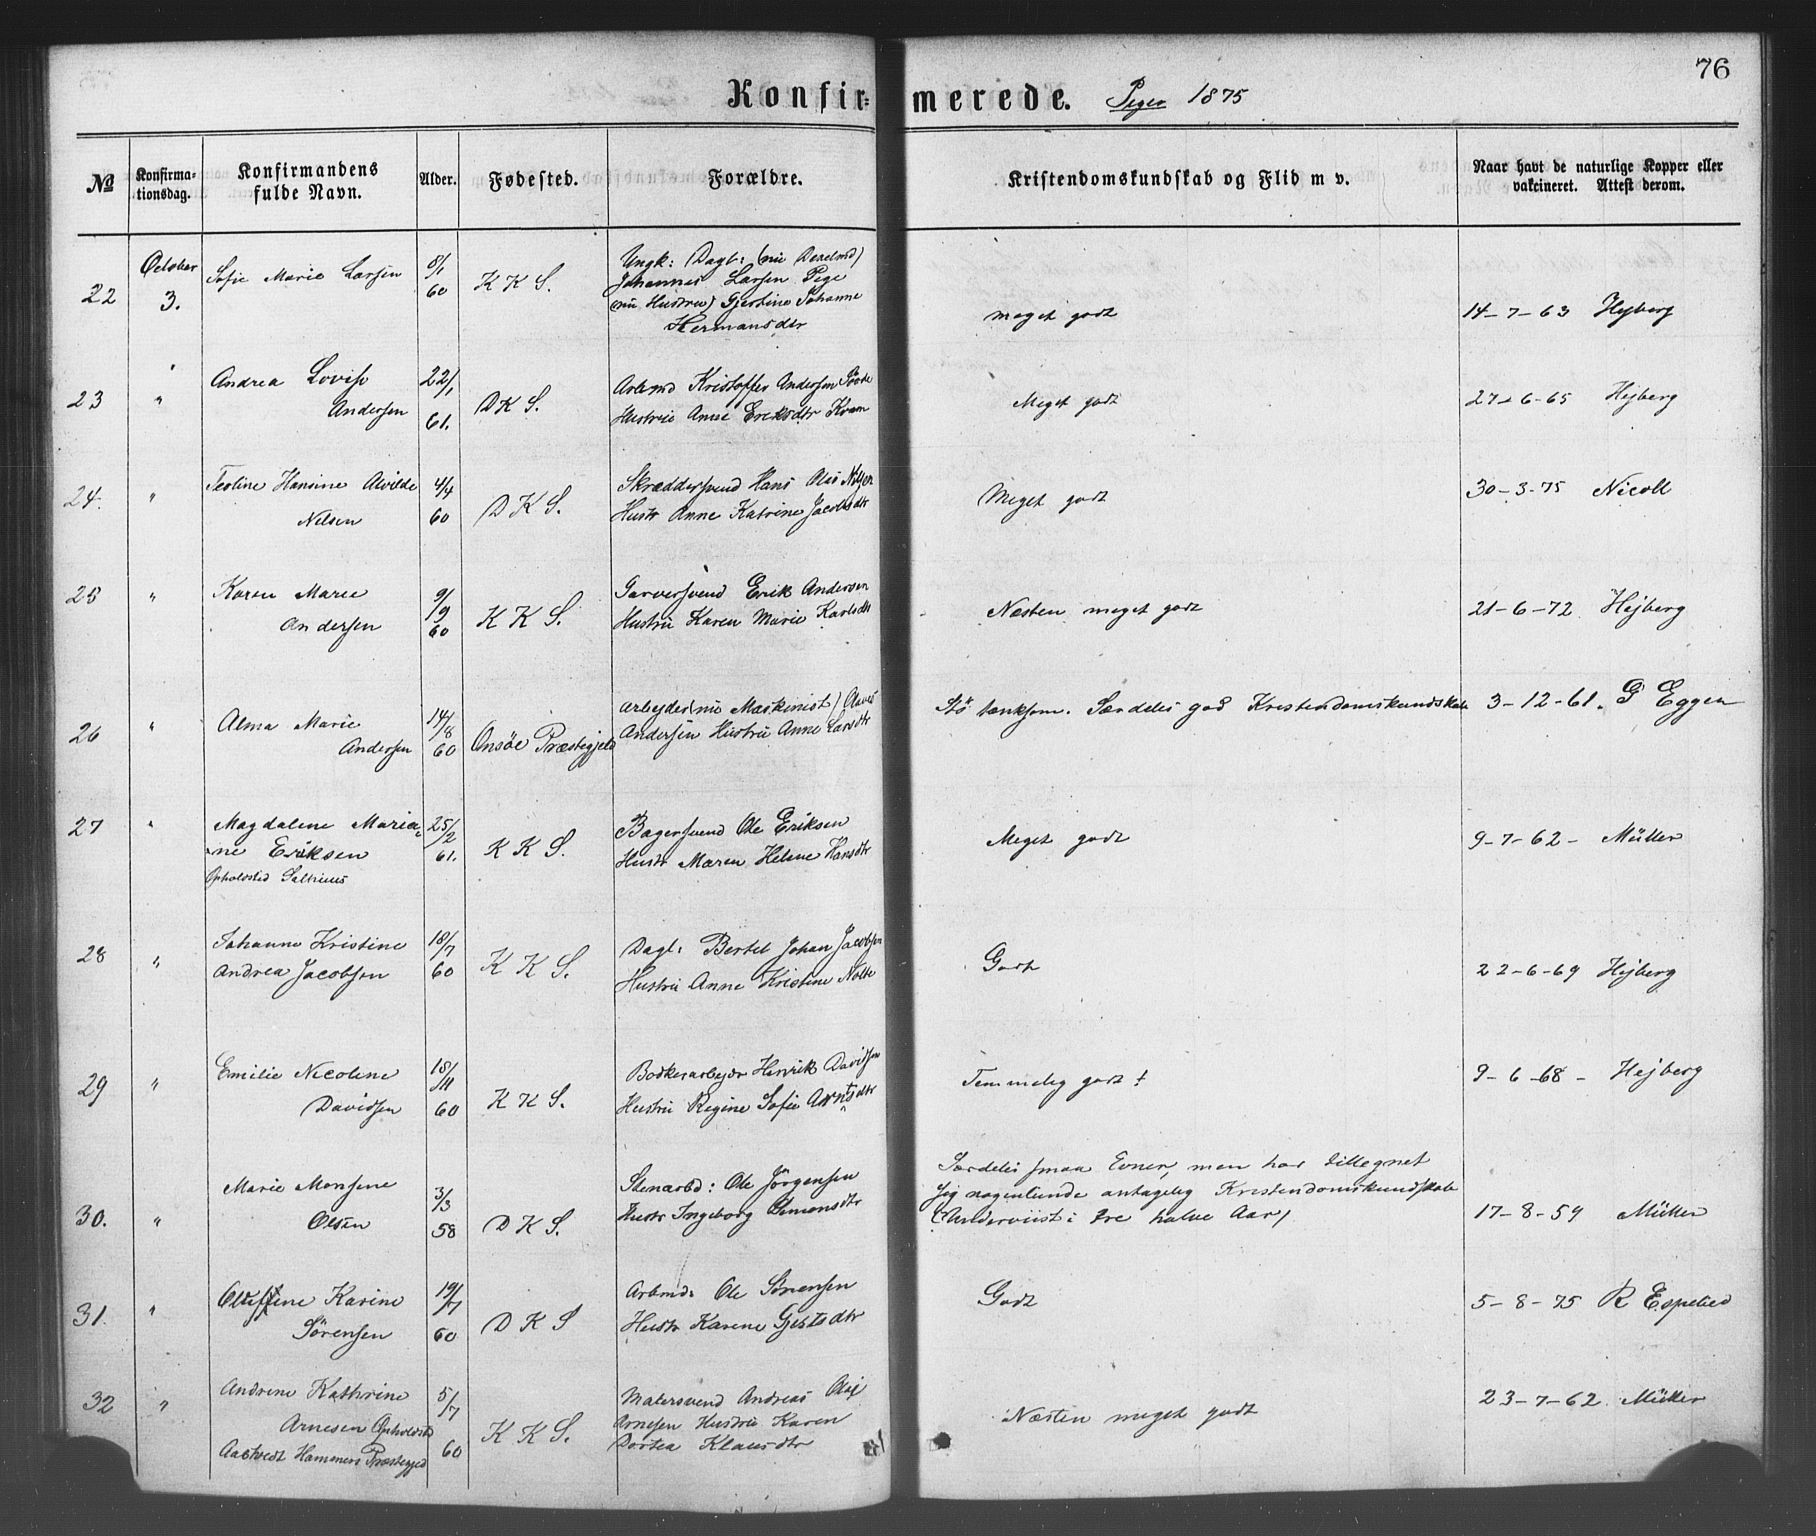 76
Konfirmerede. Piger 1875
№
Konfirmationsdag.
Konfirmandens fulde Navn.
Alder.
Fødested.
Forældre.
Kristendomskundskab og Flid m v.
Naar havt de naturlige Kopper eller vakcineret. Attest derom.
22
October 3.
Sofie Marie Larsen
8/1 60
K K S.
Ungk: Dagl: (nu Dexelmd)
Johannes Larsen Pige
(nu Hustru) Gjertine Johanne
Hermansdtr
meget godt
14-7-63 Hejberg
23
"
Andrea Lovise
Andersen
22/1 61.
D K S.
Arbmd Kristoffer Andersen
Hustru Anne Eriksdtr Kvam
Meget godt
27-6-65 Hejberg
24.
"
Teoline Hansine Alvilde
Nilsen
4/4 60
D K S.
Skræddersvend Hans Olus Nilsen
Hustr Anne Katrine Jacobsdtr
Meget godt
30-3-75 Nicoll
25
"
Karen Marie
Andersen
9/9 60
K K S.
Garversvend Erik Andersen
Hustru Karen Marie Karlsdtr
Næsten meget godt
21-6-72 Hejberg
26
"
Alma Marie
Andersen
14/8 60
Onsöe Præstegjeld
Arbeyder (nu Maskinist) Olaves
Andersen Hustru Anne Larsdtr
Stö tænksom. Særdeles god Kristendomskundskab
3-12-61. G Eggen
27
"
Magdalene Maria-
ne Eriksen
Opholdsted Saltnæs
25/2 61.
K K S.
Bagersvend Ole Eriksen
Hustr Maren Helene Hansdtr
Meget godt
9-7-62- Müller
28
"
Johanne Kristine
Andrea Jacobsen
18/7 60
K K S.
Dagl: Bertel Johan Jacobsen
Hustru Anne Kristine Nolte
Godt
22-6-69 Hejberg
29
"
Emilie Nicoline
Davidsen
18/11 60
K K S.
Bödkerarbejder Henrik Davidsen
Hustru Regine Sofie Arntsdtr
Temmelig godt +
9-6-68- Hejberg
30.
"
Marie Monsine
Olsen
3/3 58
D K S.
Stenarbd: Ole Jörgensen
Hustr Ingeborg Simensdtr
Særdeles smaa Evner, men har tillegnet
sig nogenlunde antagelig Kristendomskundskab
(Underviist i tre halve Aar)
17-8-59 Müller
31.
"
Karine
Sörensen
19/7 60
D K S
Arbmd: Ole Sörensen
Hustr Karene Gjertsdtr
Godt
5-8-75 R Espelied
32
"
Andrine Kathrine
Arnesen Opholdsts
Aastvedt Hammers Præstegjed
5/7 60
K K S.
Malersvend Andreas Olaf
Arnesen Hustru Karen
Dortea Klausdtr
Næsten meget godt
23-7-62 Müller